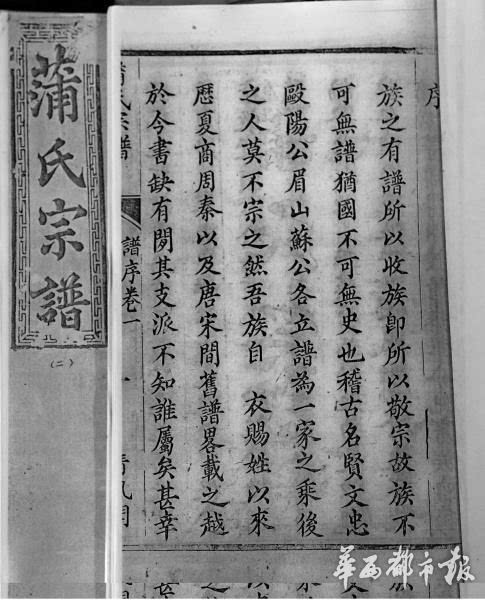 序
族之有譜所以收族卽所以敬宗故族不
可無譜猶國不可無史也稽古名賢文忠
歐陽公眉山蘇公各立譜為一家之乘後
之人莫不宗之然吾族自 衣賜姓以來
歷夏商周秦以及唐宋間舊譜畧載之越
於今書缺有閒其支派不知誰屬矣甚幸
蒲氏宗譜
譜序卷一
一
蒲氏宗譜
(二)
華西都市報